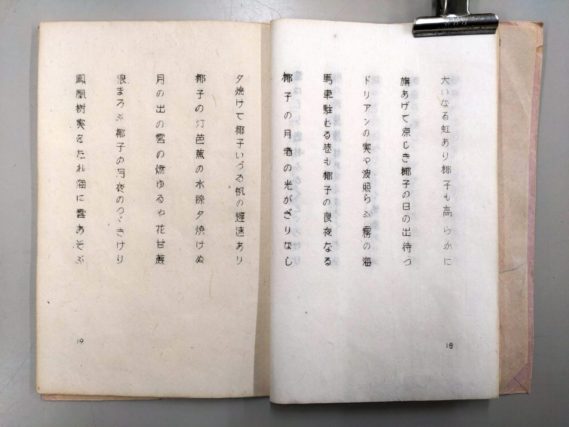 大いなる虹あり椰子も高らかに
旗あげて涼しき椰子の日の出待つ
ドリアンの実や波照らふ靄の海
馬車駐むる彼も椰子の良夜なる
椰子の月酒の光がぎりなし
18
夕焼けて椰子いづる帆の遅速あり
椰子の灯芭蕉の水除夕焼けぬ
月の出の雲の燃ゆるや花甘蔗
浪まろぶ椰子の月夜のつゞきけり
鳳凰樹実をたれ海に雲あそぶ
19